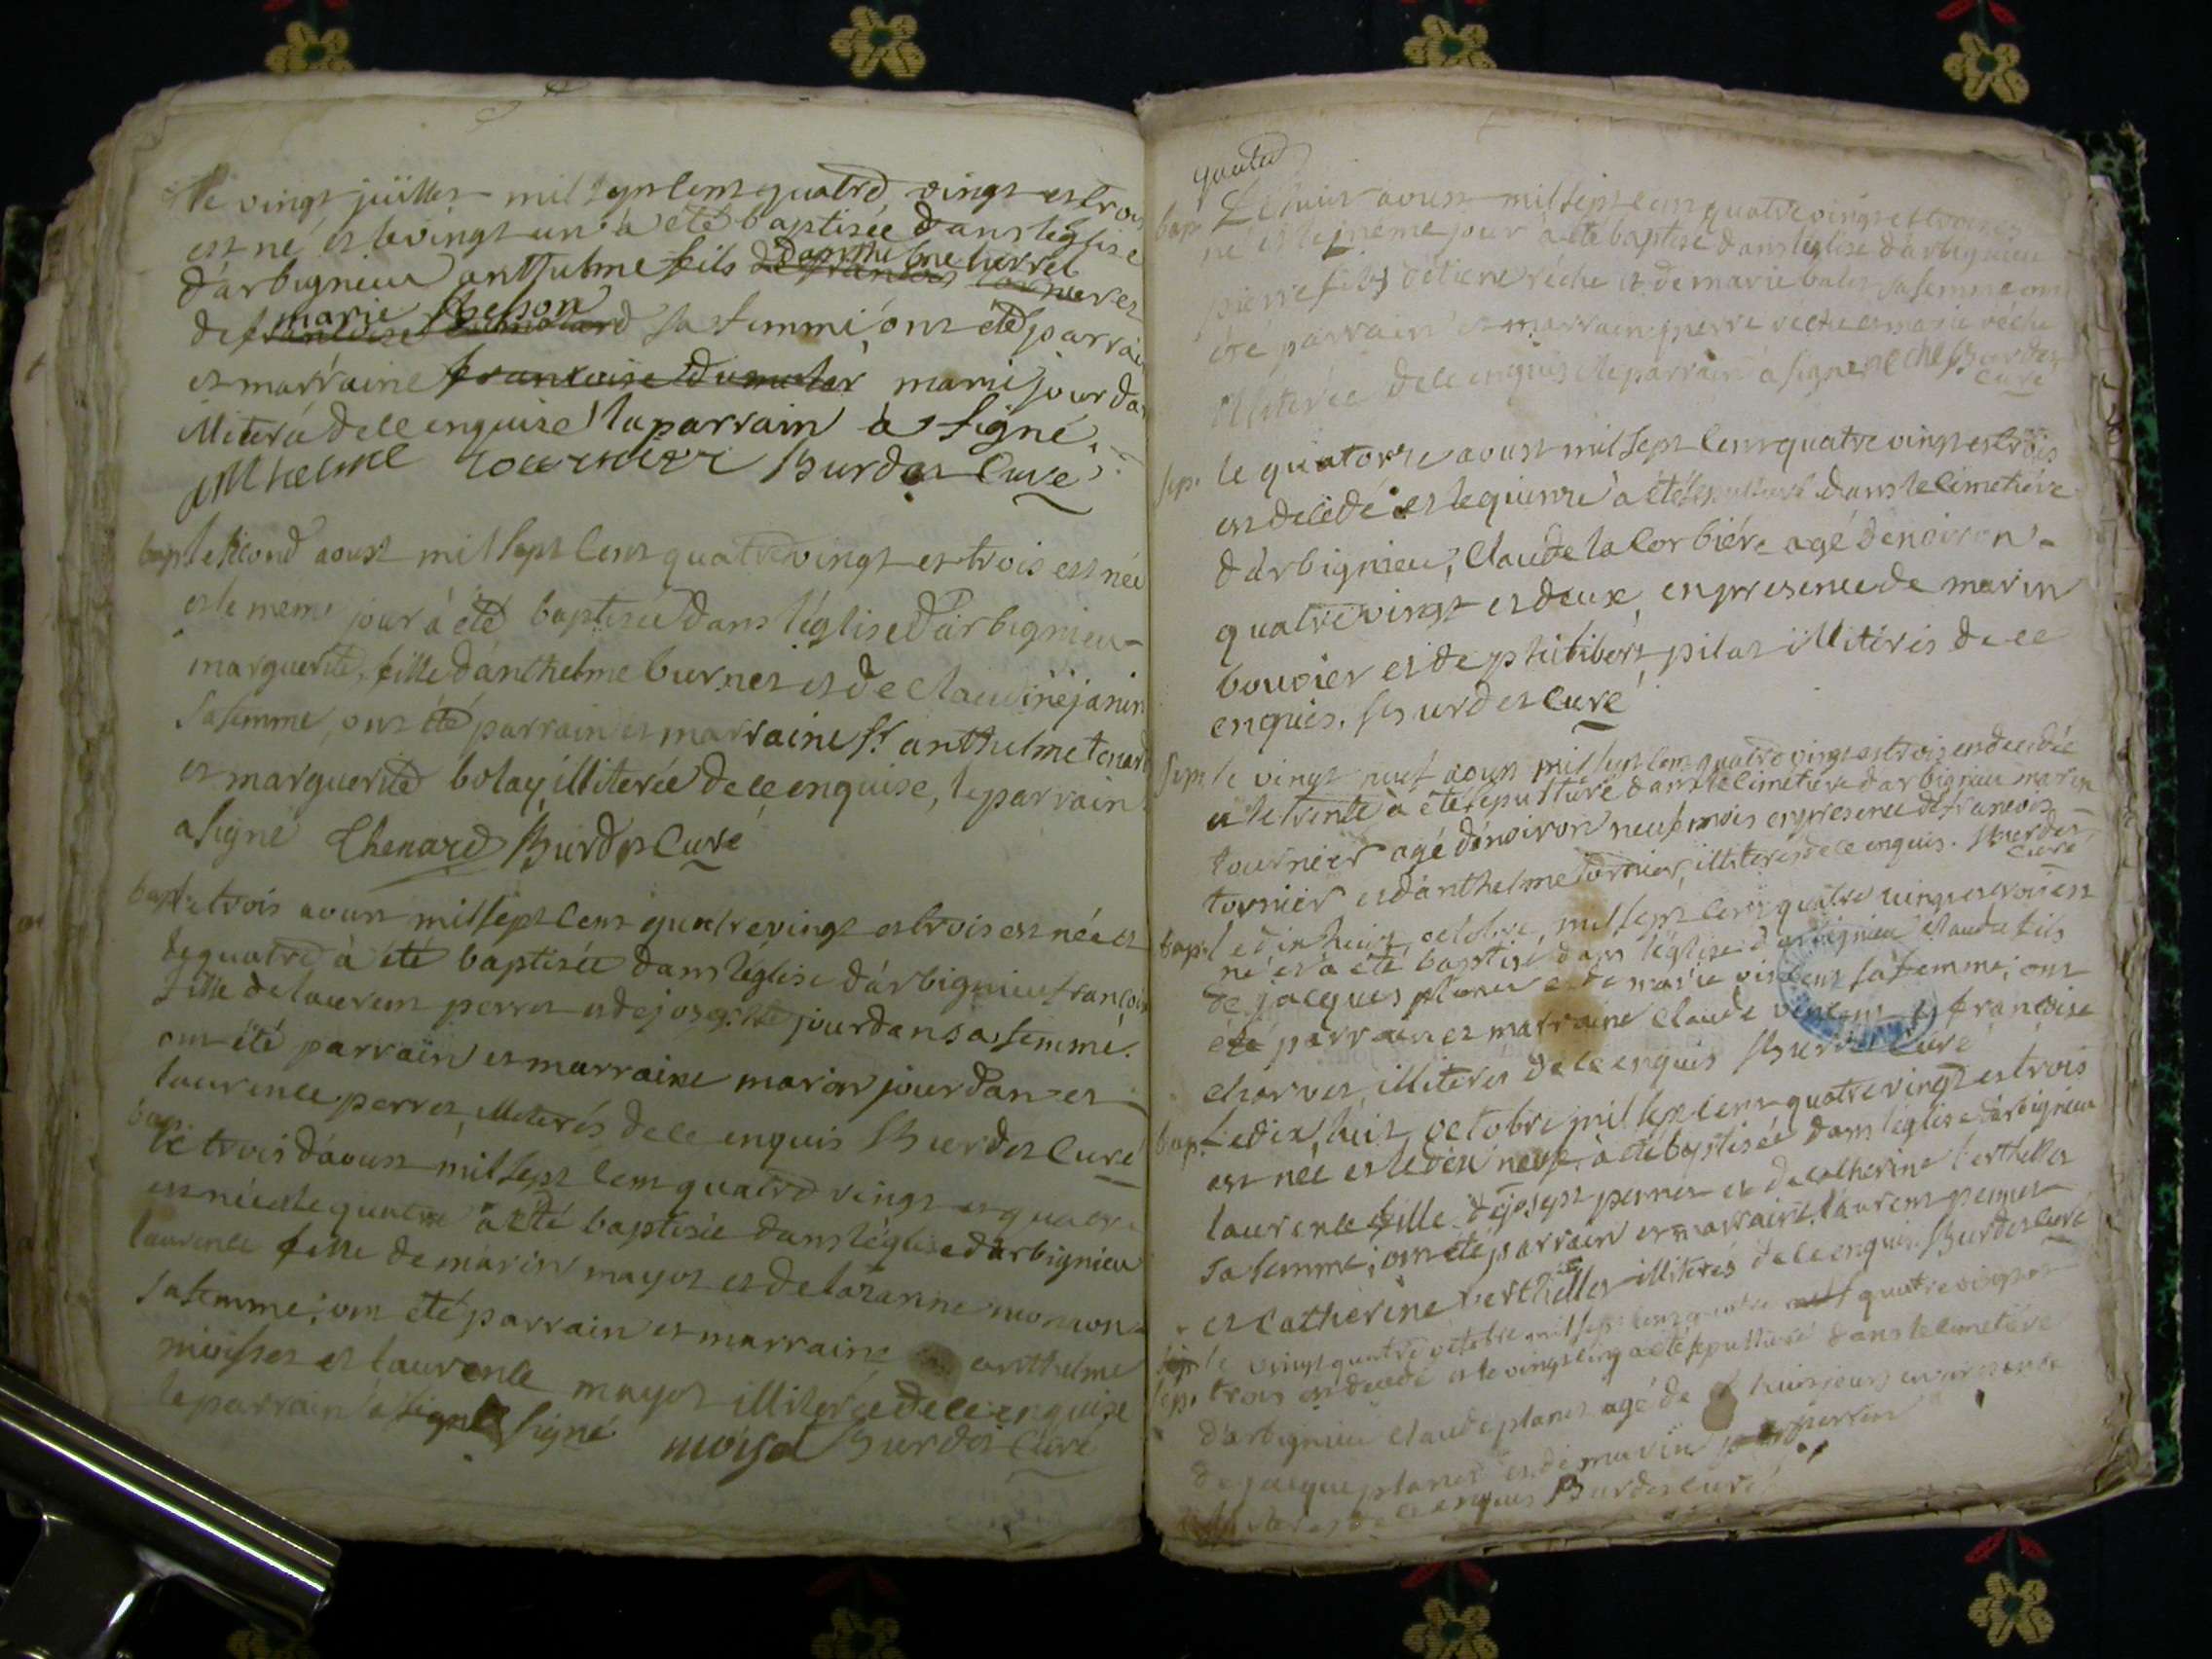 le vingt juillet mil sept cent quatre vingt et trois
est né et le vingt un a été baptisée dans l'église
d'arbignieu anthelme fils d'anthelme
de marie sa femme, ont été parrain
et marraine francoise dumolar marie jourdan
illiterée de ce enquise le parrain a signé.
anthelme tournier Burdet Curé
bap. le second aoust mil sept cent quatre vingt et trois est née
et le meme jour a été baptisée dans l'église d'arbignieu
marguerite, fille d'anthelme burnet et de claudine janin
sa femme, ont été parrain et marraine sr anthelme tenard
et marguerite bolay illiterée de ce enquise, le parrain
a signé Thenard Burdet Curé
bap. le trois aoust mil sept cent quatre vingt et trois est née et
le quatre a été baptisée dans l'église d'arbignieu francoise
fille de laurent perret et de josephte jourdan sa femme.
ont été parrain et marraine marin jourdan et
laurence perret, illiterés de ce enquis Burdet Curé
bap. le trois d'aoust mil sept cent quatre vingt et quatre
est née et le quatre a été baptisée dans l'église d'arbignieu
laurence fille de marin mayot et de lozanne
sa femme; ont été parrain et marraine anthelme
moisset et laurence mayot illiterée de ce enquise
le parrain a signé signé moisel Burdet Curé
quatre
bap. Le huit aoust mil sept cent quatre vingt et trois est
né et le meme jour a été baptisé dans l'église d'arbignieu
pierre fils d'etiene réche et de marie balet sa femme ont
été parrain et marraine pierre reche et marie réche
illiterée de ce enquis le parrain a signé reche Burdet
curé
sep. le quatorze aoust mil sept cent quatre vingt et trois
est decédé et le quinze a été sepulturé dans le cimetière
d'arbignieu, Claude la Corbière agé d'environ
quatre vingt et deux, en presence de marin
bouvier et de philibert pilat illiterés de ce
enquis. Burdet Curé
sep. le vingt neuf aoust mil sept cent quatre vingt et trois est decedée
et le trente a été sepulturé dans le cimetière d'arbignieu marin
tournier agé d'environ neuf mois en presence de francois
tornier et d'anthelme tornier, illiterés de ce enquis. Burdet
curé
bap. le dix huit octobre, mil sept cent quatre vingt et trois est
né et a été baptisé dans l'église d'arbignieu claude fils
de jacques planet et de marie vincent sa femme; ont
été parrain et marraine Claude vincent et francoise
charvet, illiteres de ce enquis Burdet Curé
bap. le dix huit octobre mil sept cent quatre vingt et trois
est née et le dix neuf a été baptisée dans l'église d'arbignieu
laurence fille de josept pernet et de catherine berthellet
sa femme; ont été parrain et marraine laurent pernet
et Catherine berthellet illiterés de ce enquis Burdet curé
sep. le vingt quatre octobre mil sept cent quatre vingt et
sep. trois est decedé et le vingt cinq a été sepulturé dans le cimetière
d'arbignieu claude planet agé de huit jours en presence
de jacque planet et de marin
illiterés de ce enquis Burdet curé